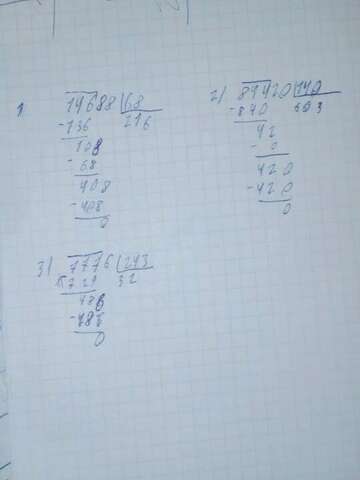 1. 14688 | 68
-136 216
108
- 68
408
- 408
0
2) 84420 | 140
- 840 603
42
- 0
420
- 420
0
3) 7776 | 243
729 32
486
- 486
0